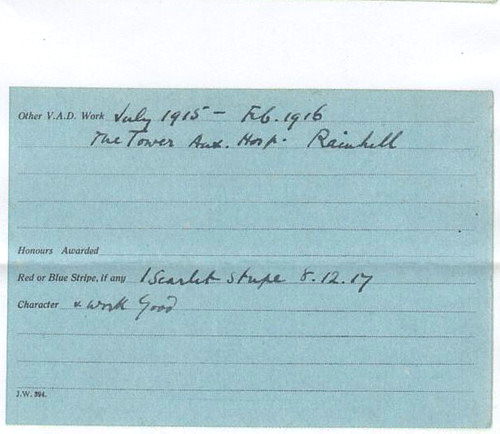 Other V.A.D. Work July 1915 - Feb. 1916
The Tower Aux. Hosp. Rainhill
Honours Awarded
Red or Blue Stripe, if any 1 Scarlet Stripe 8.12.17
Character & work Good
J.W. 394.